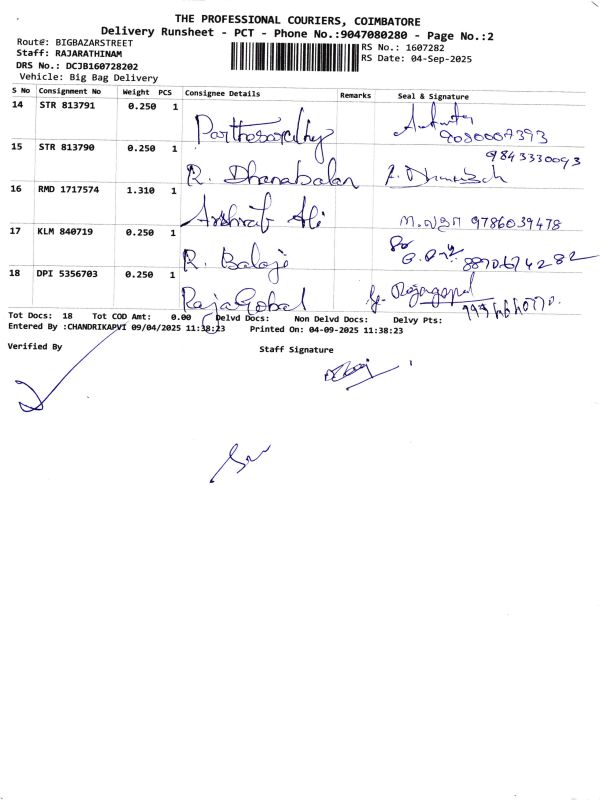 THE PROFESSIONAL COURIERS, COIMBATORE
Delivery Runsheet - PCT - Phone No.:9047080280 - Page No.:2
Route@: BIGBAZARSTREET
RS No.: 1607282
Staff: RAJARATHINAM
RS Date: 04-Sep-2025
DRS No.: DCJB160728202
Vehicle: Big Bag Delivery
S No Consignment No Weight PCS Consignee Details Remarks Seal & Signature
14 STR 813791 0.250 1 Parthasarathy
15 STR 813790 0.250 1 R. Dhanabalan 9843330093
16 RMD 1717574 1.310 1 Arshraf Ali 9786039478
17 KLM 840719 0.250 1 R. Balaji
18 DPI 5356703 0.250 1 RajaGobal Rajagopal
Tot Docs: 18 Tot COD Amt: 0.00 Delvd Docs: Non Delvd Docs: Delvy Pts:
Entered By :CHANDRIKAPVI 09/04/2025 11:38:23 Printed On: 04-09-2025 11:38:23
Verified By
Staff Signature